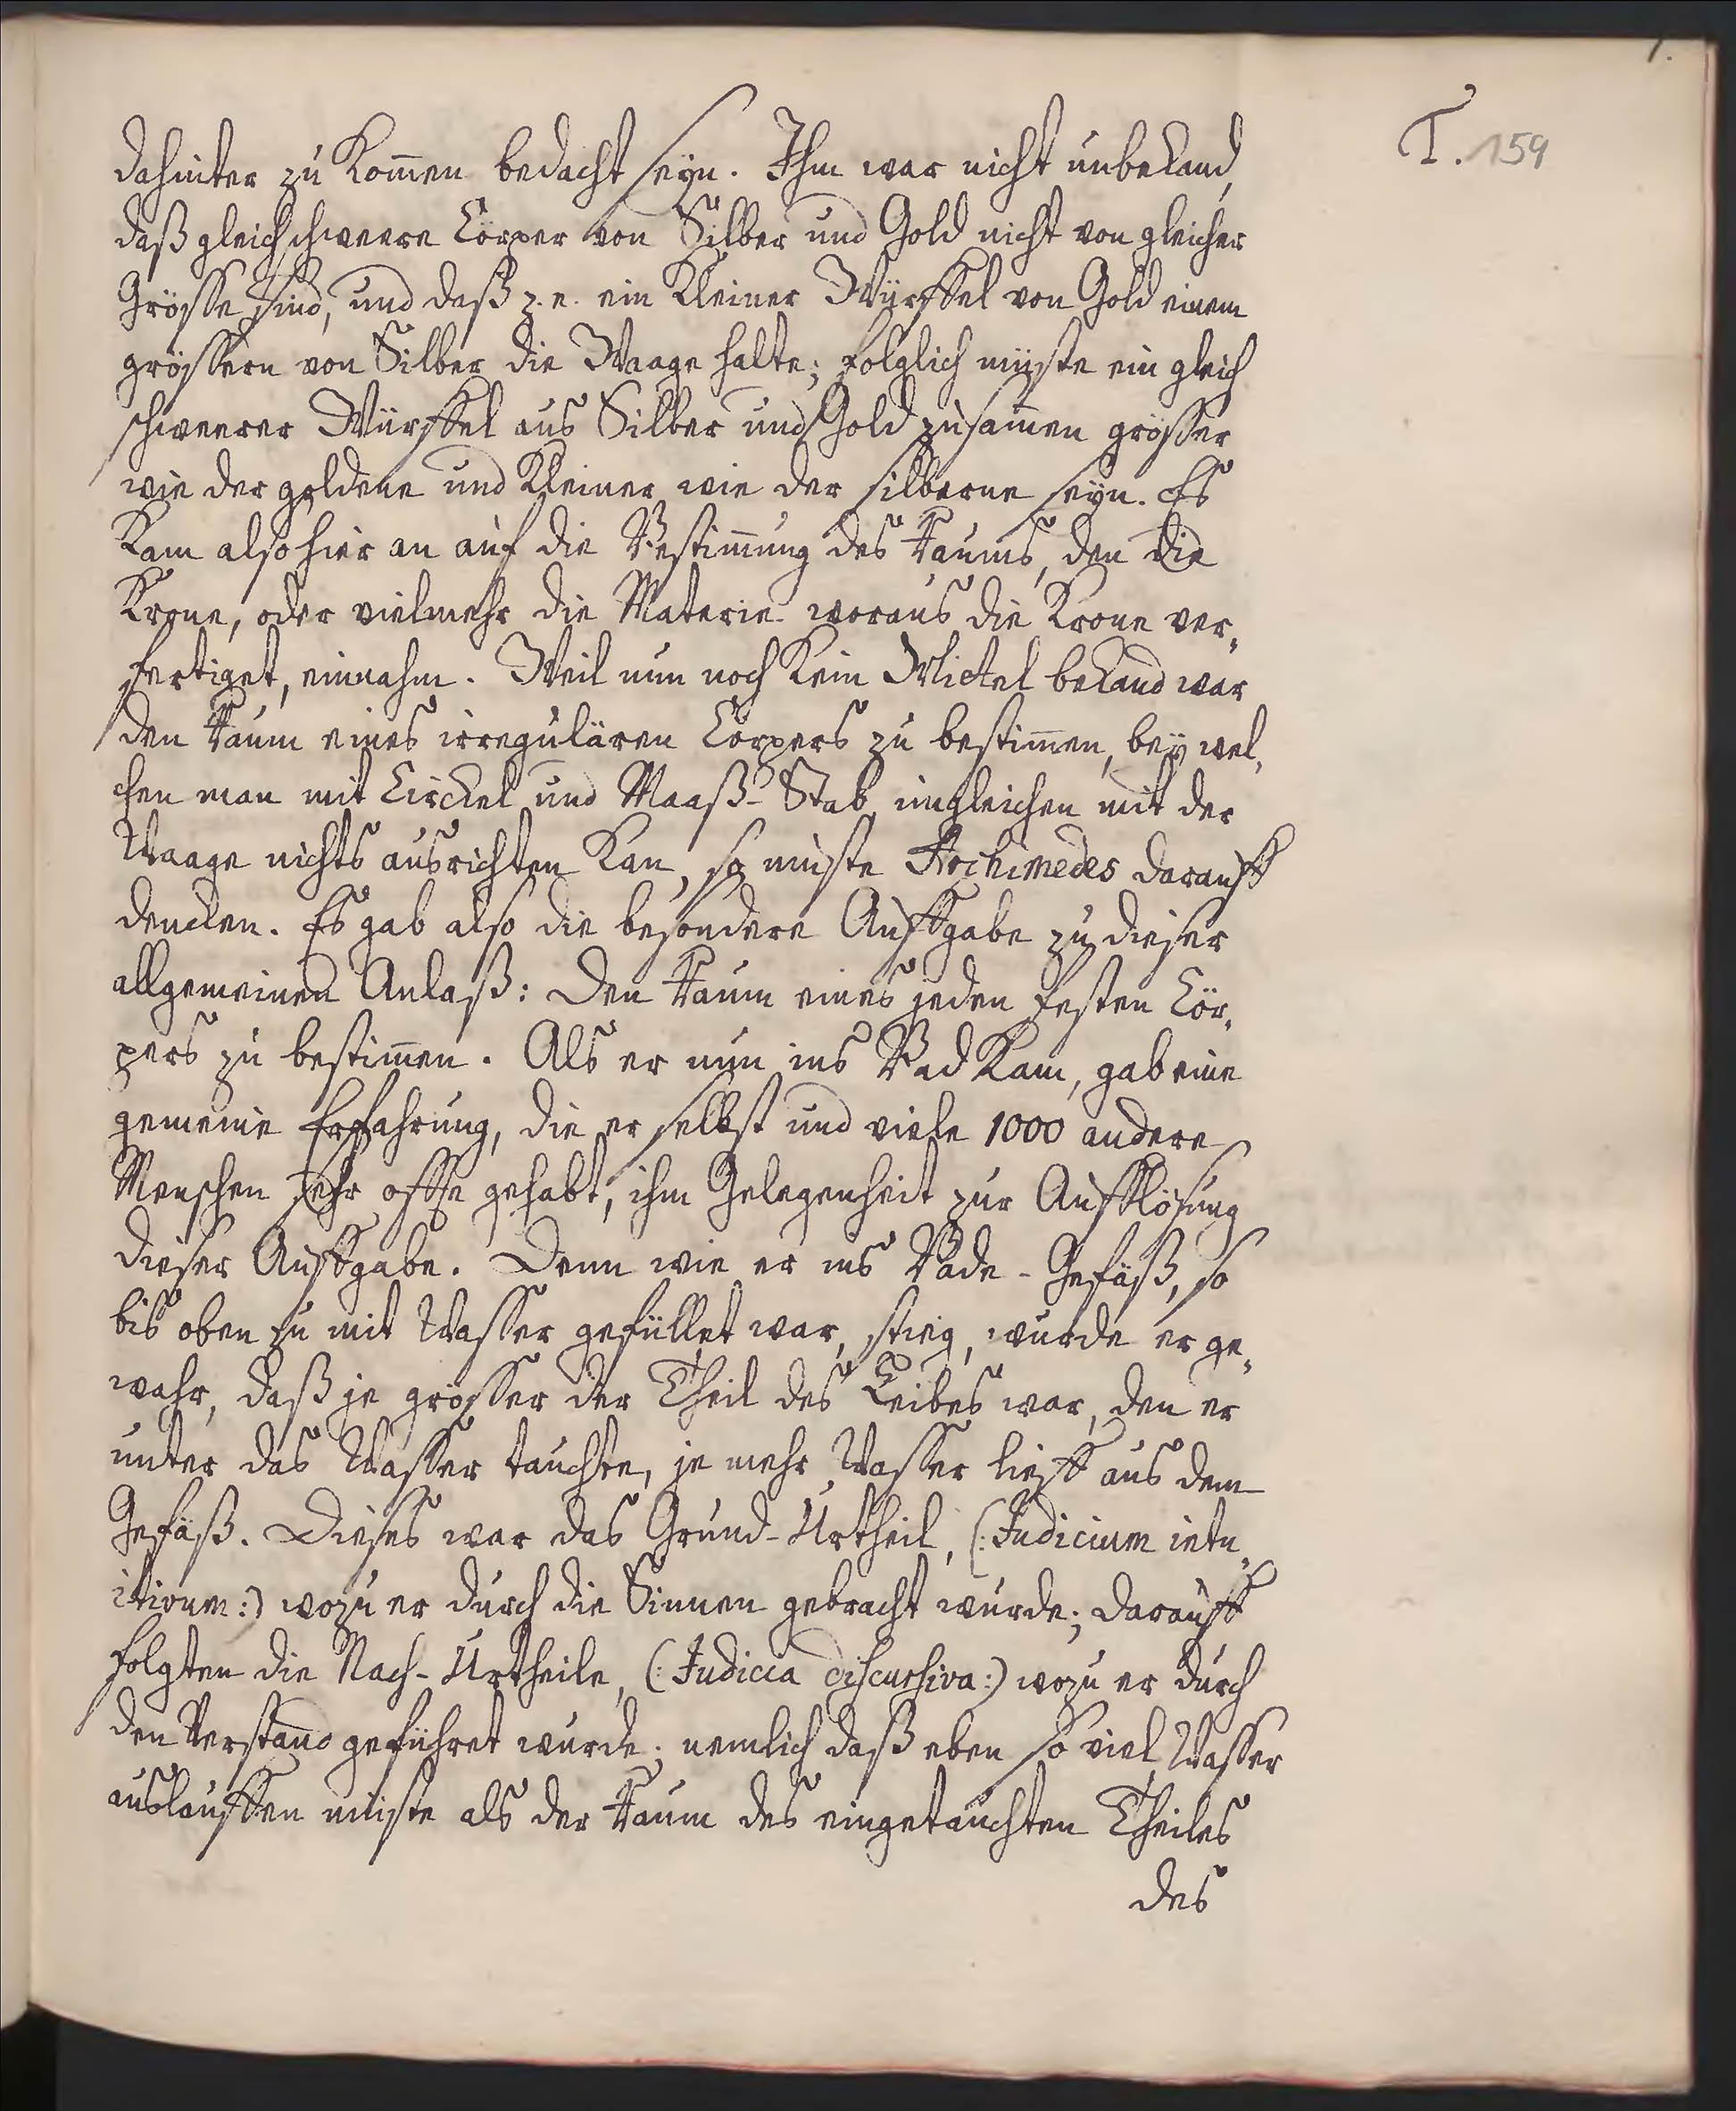 T. 159
dahinter zu kom̅en bedacht seyn. Ihm war nicht unbekand,
daß gleich schweere Cörper von Silber und Gold nicht von gleicher
Grösse sind, und daß z. e. ein kleiner Würffel von Gold einem
grössern von Silber die Waage halte; folglich müste ein gleich
schweerer Würffel aus Silber und Gold zusam̅en grösser
wie der goldene und kleiner wie der silberne seyn. Es
kam also hier an auf die Bestim̅ung des Raums, den die
Krone, oder vielmehr die Materie woraus die Krone ver„
fertiget, einnahm. Weil nun noch kein Mittel bekand war
den Raum eines irregulären Cörpers zu bestim̅en, bey wel„
chen man mit Circkel und Maaß-Stab, imgleichen mit der
Waage nichts ausrichten kan, so muste Archimedes darauff
dencken. Es gab also die besondere Auffgabe zu dieser
allgemeinen Anlaß: Den Raum eines jeden festen Cör„
pers zu bestim̅en. Als er nun ins Bad kam, gab eine
gemeine Erfahrung, die er selbst und viele 1000 andere
Menschen sehr offte gehabt, ihm Gelegenheit zur Aufflösung
dieser Auffgabe. Denn wie er ins Bade-Gefäß, so
bis oben zu mit Wasser gefüllet war, stieg, wurde er ge„
wahr, daß je grösser der Theil des Leibes war, den er
unter das Wasser tauchte, je mehr Wasser lieff aus dem
Gefäß. Dieses war das Grund-Urtheil, (: Judicium intu„
itivum:) wozu er durch die Sinnen gebracht wurde; darauff
folgten die Nach-Urtheile, (: Judicia discursiva:) wozu er durch
den Verstand geführet wurde; nemlich daß eben so viel Wasser
auslauffen müste als der Raum des eingetauchten Theiles
des